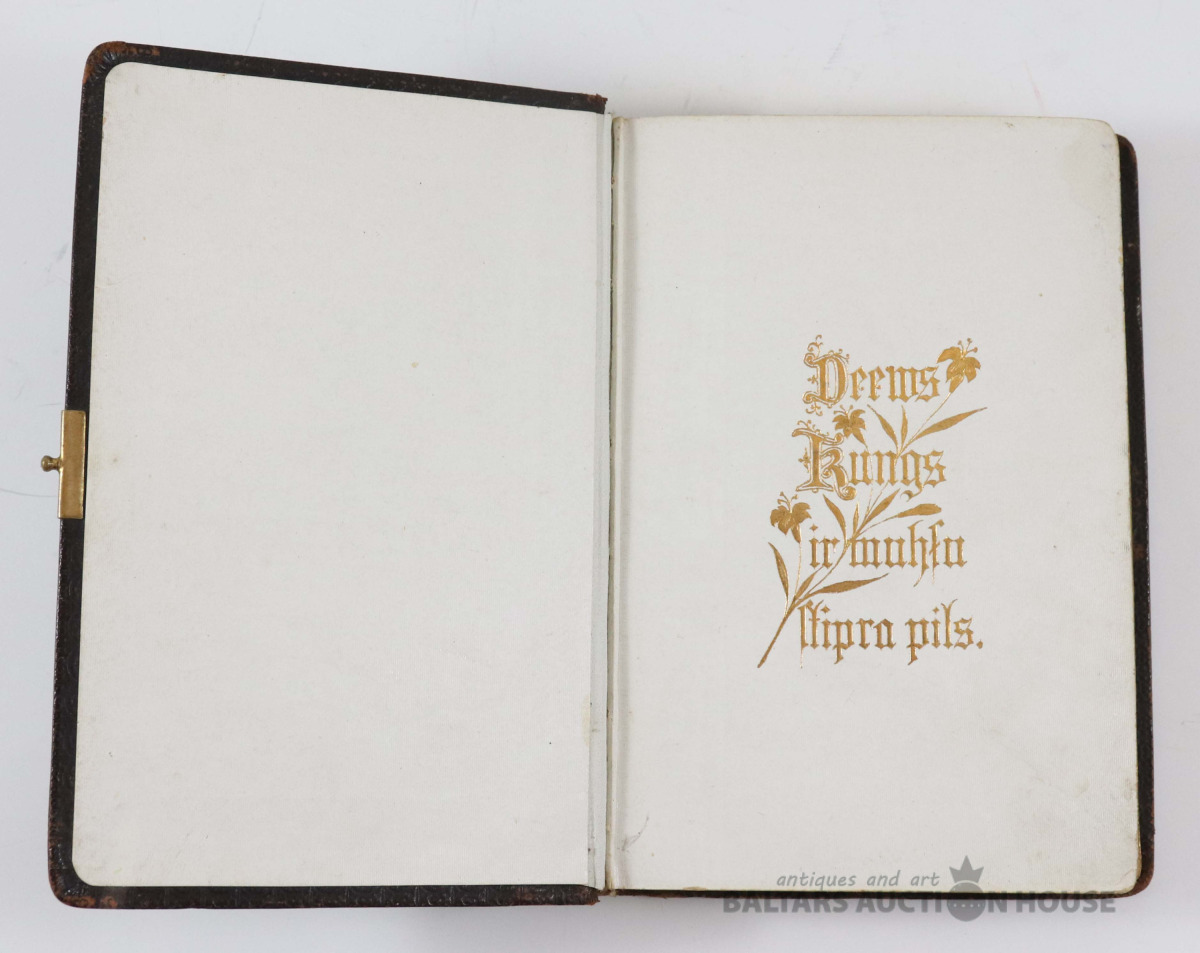 Deews
Kungs
ir muhſu
ſtipra pils.
antiques and art
BALTARS AUCTION HOUSE